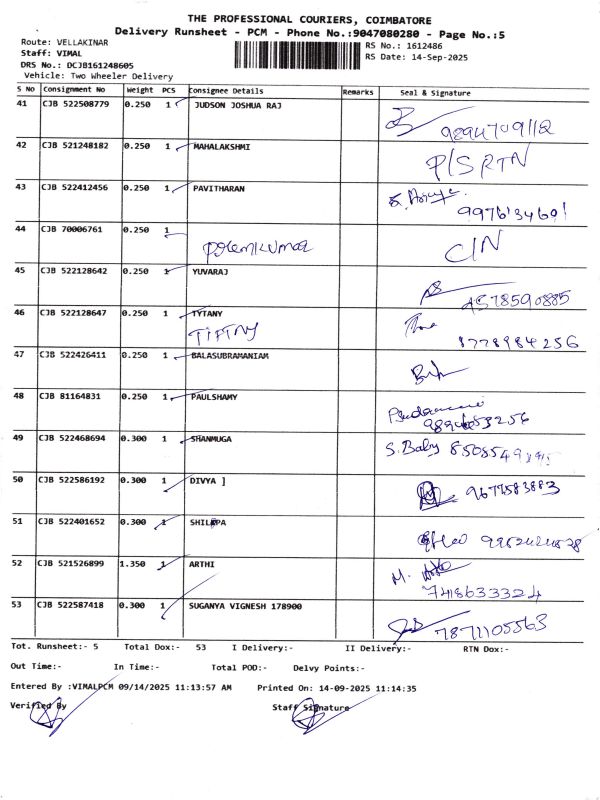 THE PROFESSIONAL COURIERS, COIMBATORE
Delivery Runsheet - PCM - Phone No.:9047080280 - Page No.:5
Route: VELLAKINAR
RS No.: 1612486
Staff: VIMAL
RS Date: 14-Sep-2025
DRS No.: DCJB161248605
Vehicle: Two Wheeler Delivery
S No Consignment No Weight PCS Consignee Details Remarks Seal & Signature
41 CJB 522508779 0.250 1 JUDSON JOSHUA RAJ
9894709112
42 CJB 521248182 0.250 1 MAHALAKSHMI P/S RTN
43 CJB 522412456 0.250 1 PAVITHARAN
9976134691
44 CJB 70006761 0.250 1
CIN
45 CJB 522128642 0.250 1 YUVARAJ
46 CJB 522128647 0.250 1 TYTANY
TIFTNY
8778984256
47 CJB 522426411 0.250 1 BALASUBRAMANIAM
48 CJB 81164831 0.250 1 PAULSHAMY
49 CJB 522468694 0.300 1 SHANMUGA S. Baby
50 CJB 522586192 0.300 1 DIVYA ] 9677583883
51 CJB 522401652 0.300 1 SHILPA
52 CJB 521526899 1.350 1 ARTHI
7418633324
53 CJB 522587418 0.300 1 SUGANYA VIGNESH 178900
7871105563
Tot. Runsheet:- 5 Total Dox:- 53 I Delivery:- II Delivery:- RTN Dox:-
Out Time:- In Time:- Total POD:- Delvy Points:-
Entered By :VIMALPCM 09/14/2025 11:13:57 AM Printed On: 14-09-2025 11:14:35
Verified By Staff Signature